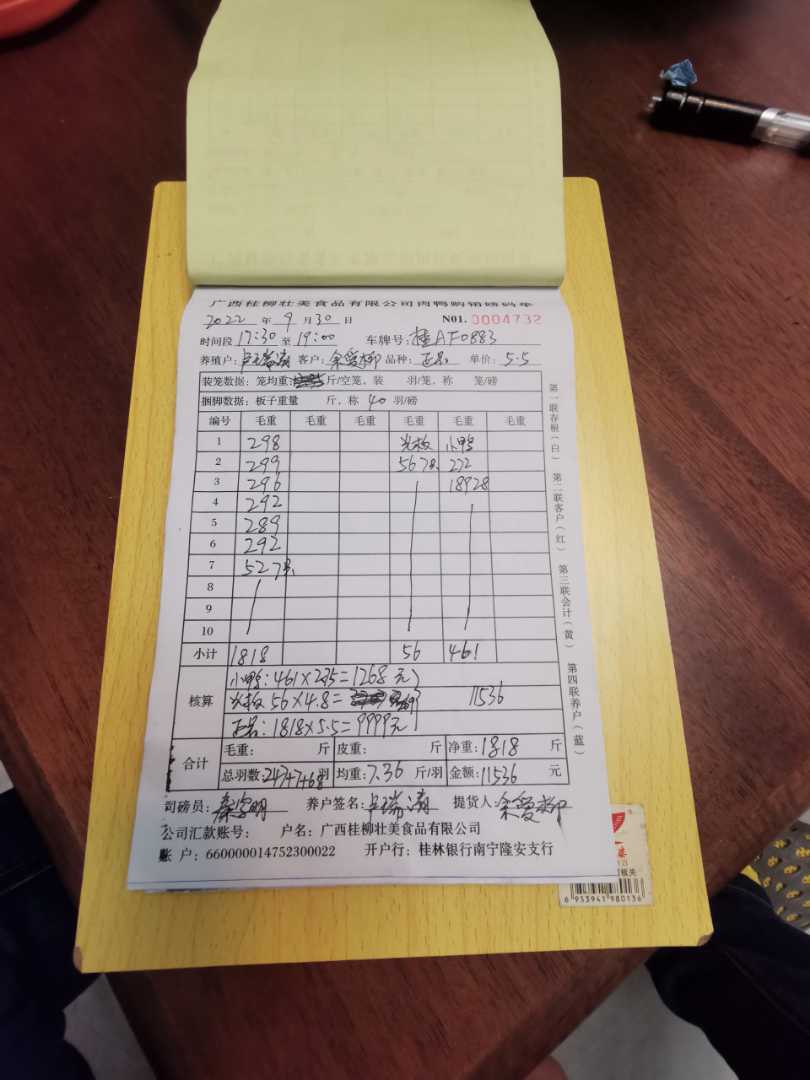 广西桂柳壮美食品有限公司肉鸭购销磅码单
2022 年 9 月 30 日 N01. 0004732
时间段 17:30 至 19:00 车牌号: 桂AF0883
养殖户: 客户: 余爱柳 品种: 正品 单价: 5.5
装笼数据: 笼均重: 斤/空笼, 装 羽/笼, 称 笼/磅
捆脚数据: 板子重量 斤, 称 40 羽/磅
编号 毛重 毛重 毛重 毛重 毛重 毛重
1 298 光板 小鸭
2 299 56 7只 272
3 296 189 28
4 292
5 289
6 292
7 52 7只
8
9
10
小计 1818 56 461
核算
小鸭: 461×2.75=1268元
光板 56×4.8= 11536
正品: 1818×5.5=9999元
合计
毛重: 斤 皮重: 斤 净重: 1818 斤
总羽数: 247+7+68 羽 均重: 7.36 斤/羽 金额: 11536 元
司磅员: 养户签名: 提货人: 余爱柳
公司汇款账号: 户名: 广西桂柳壮美食品有限公司
账 户: 660000014752300022 开户行: 桂林银行南宁隆安支行
第一联存根(白) 第二联客户(红) 第三联会计(黄) 第四联养户(蓝)
6 953941 980136